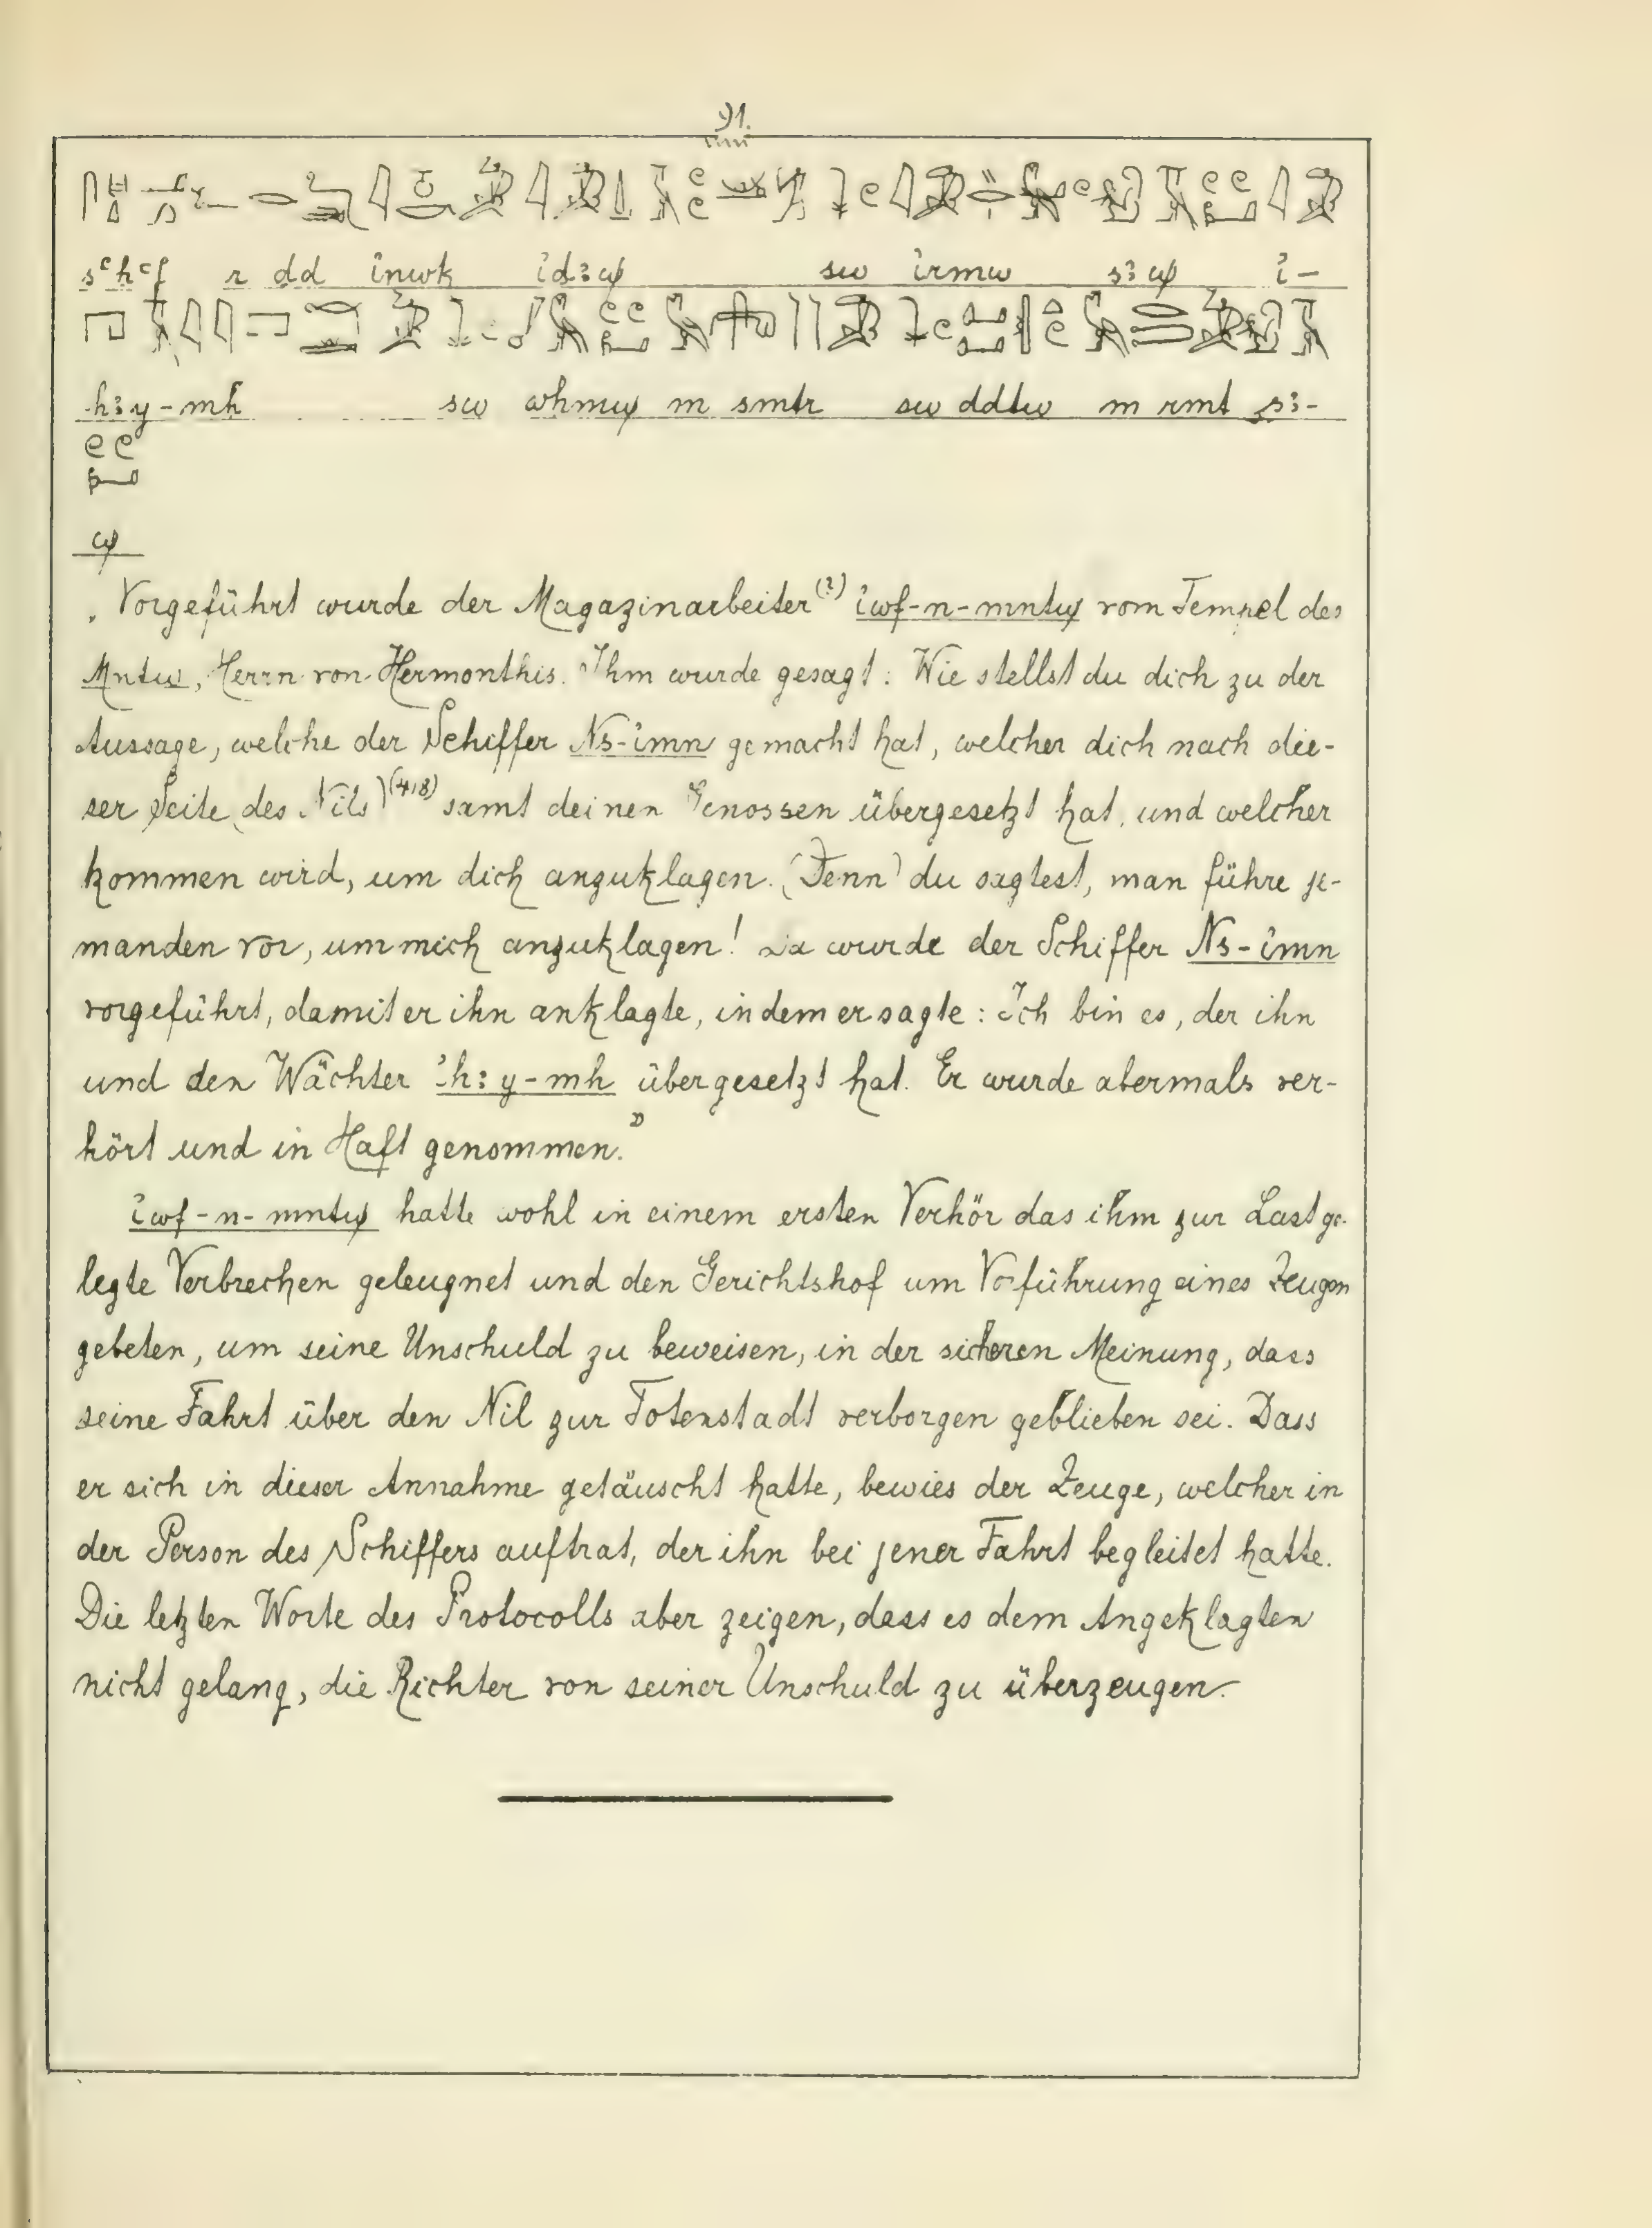 91.
sꜥḥꜥf r dd inwk idꜣw sw irmw sꜣw i-
hꜣy-mḥ sw wḥmw m smtr sw ddtw m rmt sꜣ-
w
„Vorgeführt wurde der Magazinarbeiter(?) iwf-n-mntw vom Tempel des
Mntw, Herrn von Hermonthis. Ihm wurde gesagt: Wie stellst du dich zu der
Aussage, welche der Schiffer Ns-imn gemacht hat, welcher dich nach die-
ser Seite (des Nils) (4,8) samt deinen Genossen übergesetzt hat, und welcher
kommen wird, um dich anzuklagen. (Denn) du sagtest, man führe je-
manden vor, um mich anzuklagen! Da wurde der Schiffer Ns-imn
vorgeführt, damit er ihn anklagte, indem er sagte: Ich bin es, der ihn
und den Wächter ihꜣy-mḥ übergesetzt hat. Er wurde abermals ver-
hört und in Haft genommen.”
iwf-n-mntw hatte wohl in einem ersten Verhör das ihm zur Last ge-
legte Verbrechen geleugnet und den Gerichtshof um Vorführung eines Zeugen
gebeten, um seine Unschuld zu beweisen, in der sicheren Meinung, dass
seine Fahrt über den Nil zur Totenstadt verborgen geblieben sei. Dass
er sich in dieser Annahme getäuscht hatte, bewies der Zeuge, welcher in
der Person des Schiffers auftrat, der ihn bei jener Fahrt begleitet hatte.
Die letzten Worte des Protocolls aber zeigen, dass es dem Angeklagten
nicht gelang, die Richter von seiner Unschuld zu überzeugen.